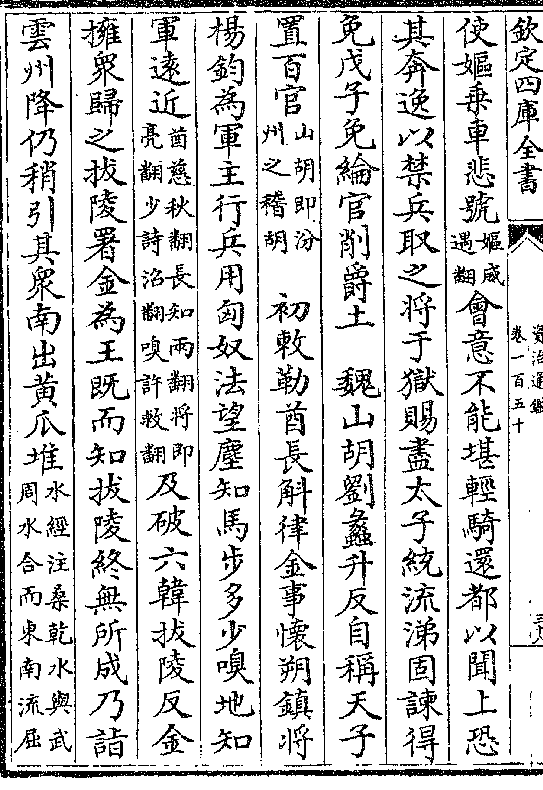 欽定四庫全書
資治通鑑
卷一百五十
使嫗乗車悲號嫗威遇翻會意不能堪輕騎還都以聞上恐
其奔逸以禁兵取之将于獄賜盡太子統流涕固諫得
免戊子免綸官削爵土　魏山胡劉蠡升反自稱天子
置百官山胡即汾州之稽胡　初敕勒酋長斛律金事懷朔鎮將
楊鈞為軍主行兵用匈奴法望塵知馬步多少嗅地知
軍逺近酋慈秋翻長知兩翻將即亮翻少詩沼翻嗅許救翻及破六韓拔陵反金
擁衆歸之拔陵署金為王既而知拔陵終無所成乃詣
雲州降仍稍引其衆南出黄瓜堆水經注桑乾水與武周水合而東南流屈